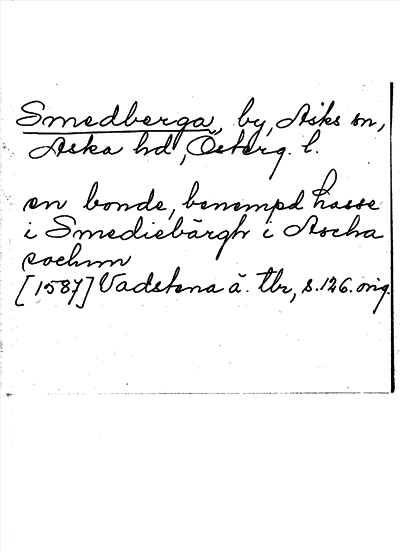 Smedberga, by, Asks sn,
Aska hd, Österg. l.
en bonde, benempd hasse
i Smediebärgh i Ascha
sochnn
[1587] Vadstena ä. tbr, s. 126. orig.